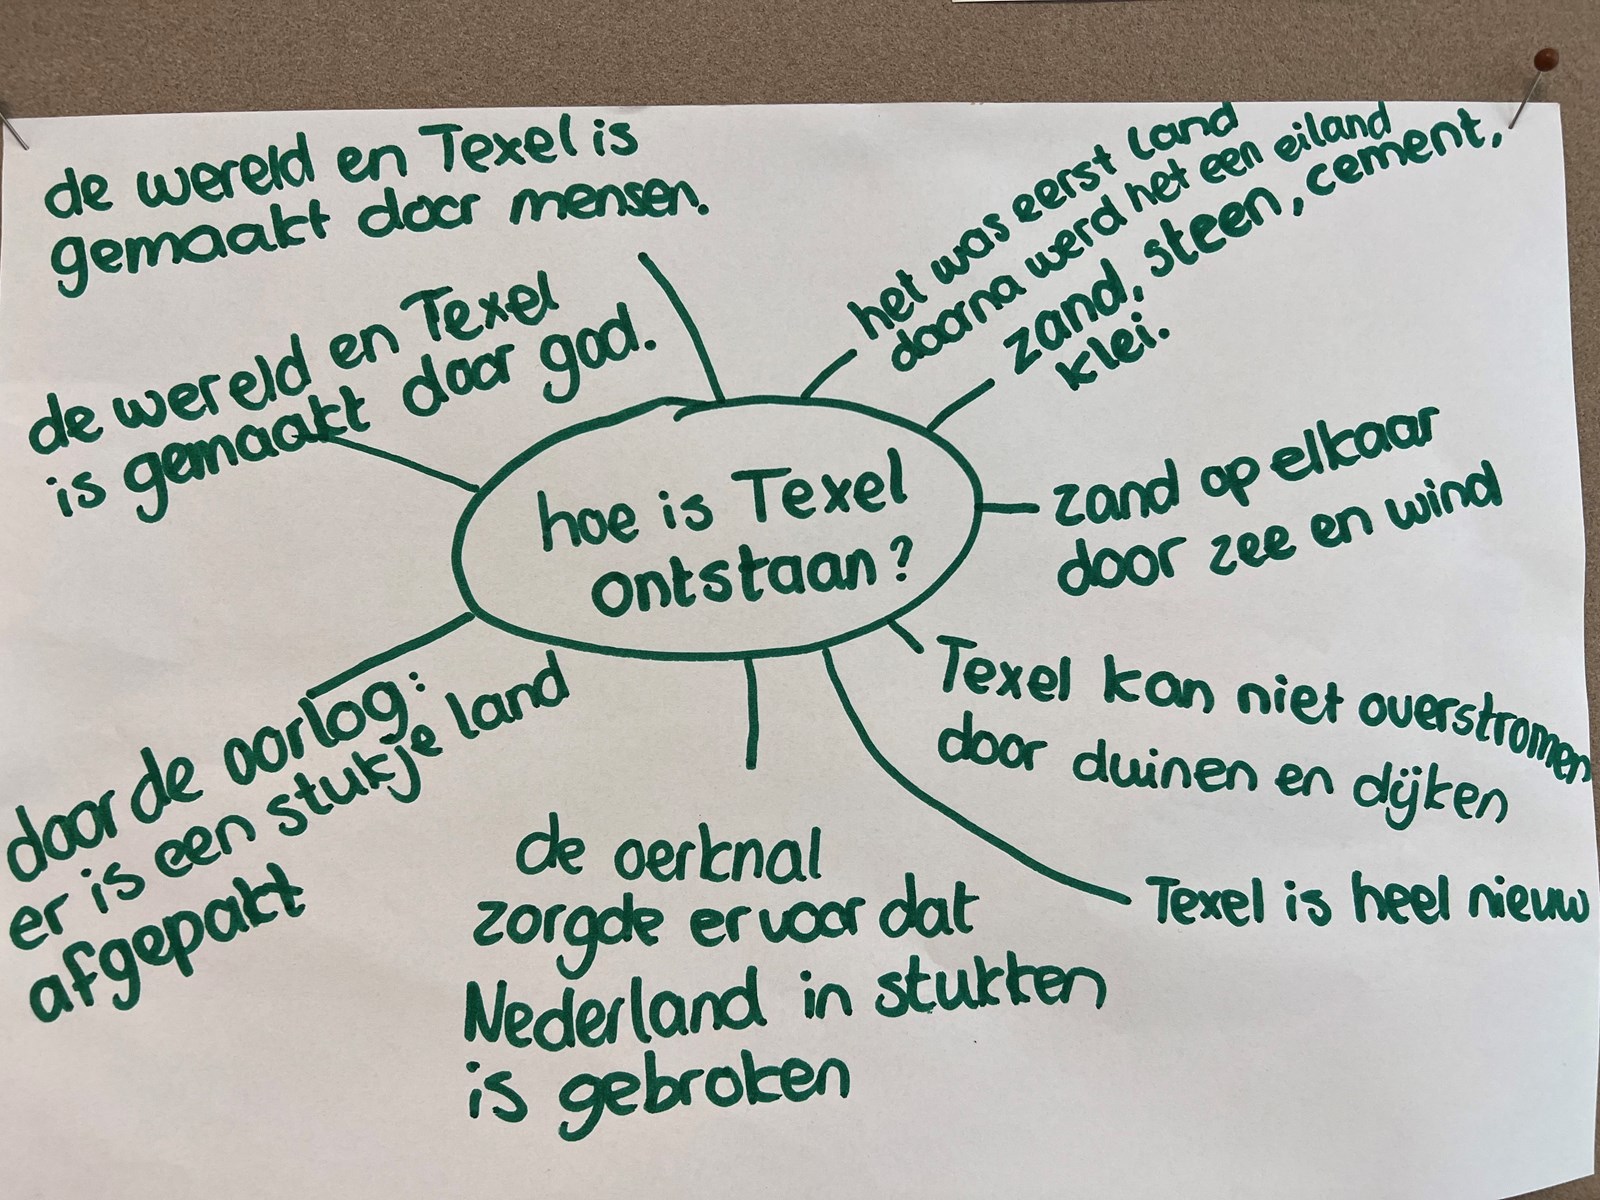 de wereld en Texel is
gemaakt door mensen.
de wereld en Texel
is gemaakt door god.
het was eerst land
daarna werd het een eiland
zand, steen, cement,
klei.
zand op elkaar
door zee en wind
hoe is Texel
ontstaan?
Texel kan niet overstromen
door duinen en dijken
Texel is heel nieuw
de oerknal
zorgde ervoor dat
Nederland in stukken
is gebroken
door de oorlog:
er is een stukje land
afgepakt